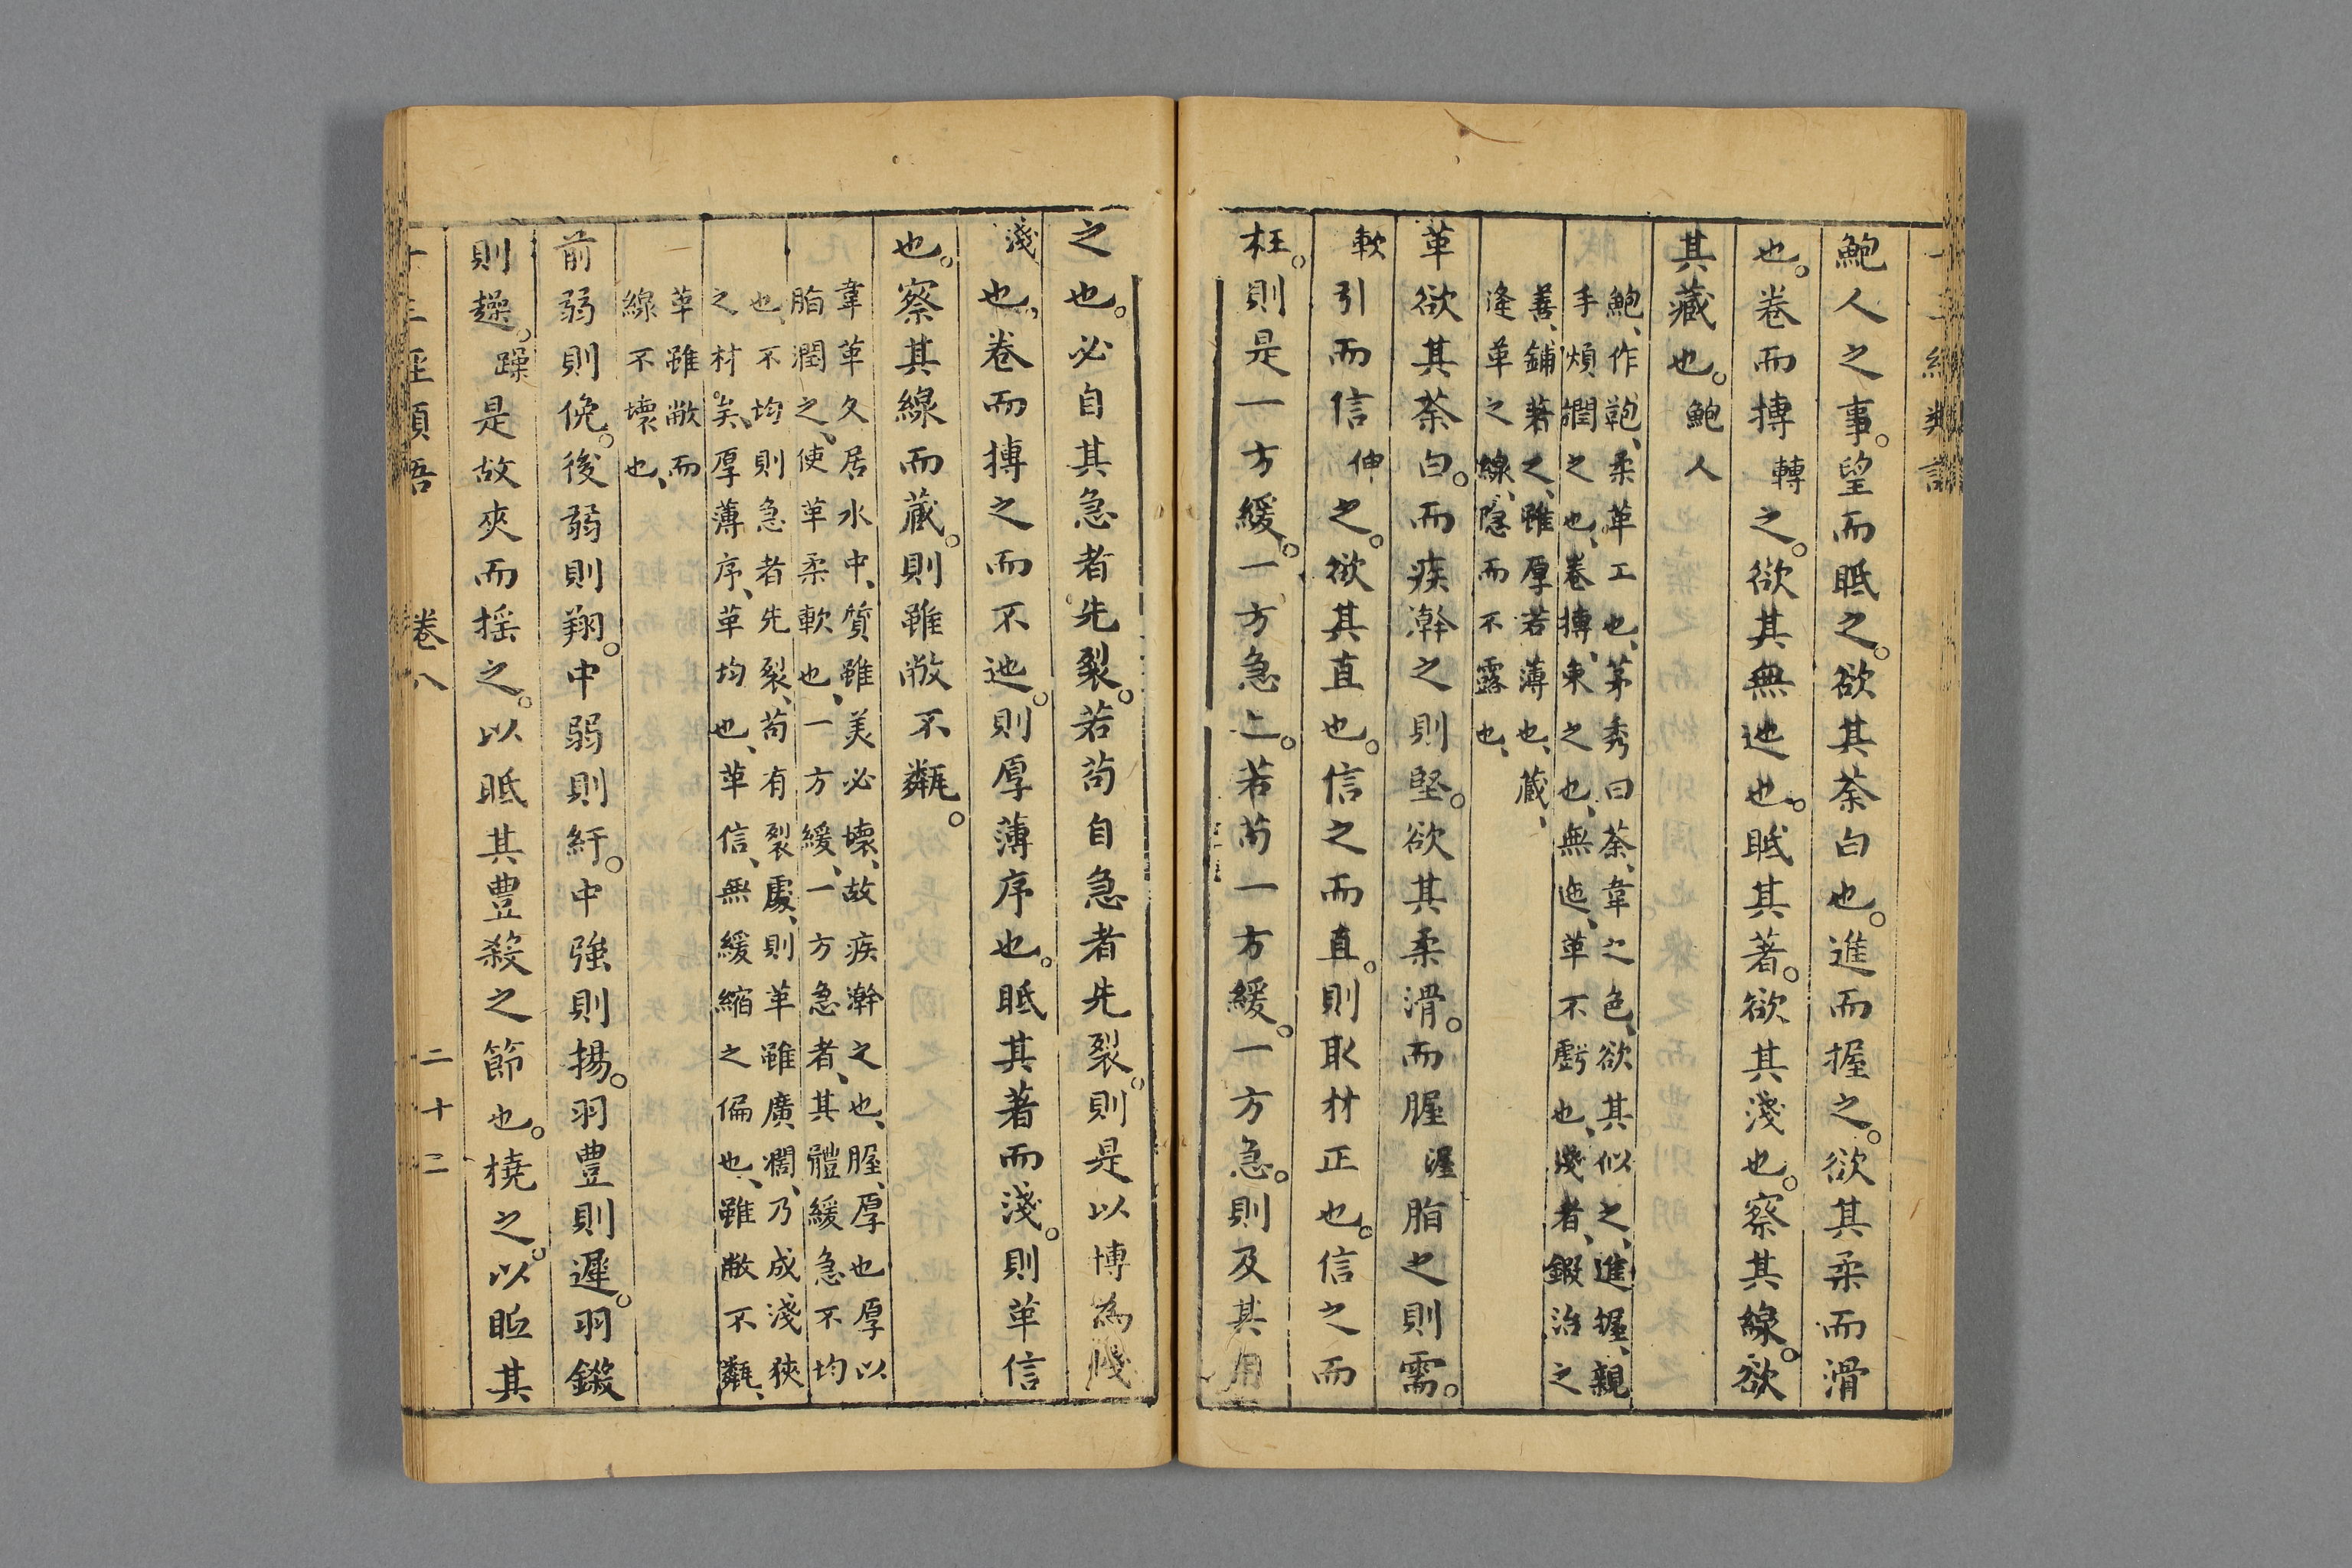 鮑人之事。望而眡之。欲其荼白也。進而握之。欲其柔而滑
也。卷而摶轉之。欲其無迆也。眡其著。欲其淺也。察其線。欲
其藏也。鮑人
鮑、作鞄、柔革工也、茅秀曰荼、韋之色、欲其似之、進握、親
手煩撋之也、卷摶、束之也、無迤、革不虧也、淺者、鍜治之
善、鋪著之、雖厚若薄也、藏、
逢革之線、隱而不露也、
革欲其荼白。而疾澣之則堅。欲其柔滑。而腛渥脂之則需。
軟引而信伸之。欲其直也。信之而直。則取材正也。信之而
枉。則是一方緩。一方急也。若苟一方緩。一方急。則及其用
之也。必自其急者先裂。若苟自急者先裂。則是以博為帴
淺也。卷而摶之而不迆。則厚薄序也。眡其著而淺。則革信
也。察其線而藏。則雖敝不甐。
韋革久居水中、質雖美必壞、故疾澣之也、腛、厚也厚以
脂潤之、使革柔軟也、一方緩、一方急者、其體緩急不均
也、不均則急者先裂、苟有裂處、則革雖廣濶、乃成淺狹
之材矣、厚薄序、革均也、革信、無緩縮之偏也、雖敝不甐、
革雖敝而
線不壞也、
前弱則俛。後弱則翔。中弱則紆。中強則揚。羽豊則遲。羽鎩
則趮。躁是故夾而搖之。以眡其豊殺之節也。橈之。以眡其
卷八
二十二